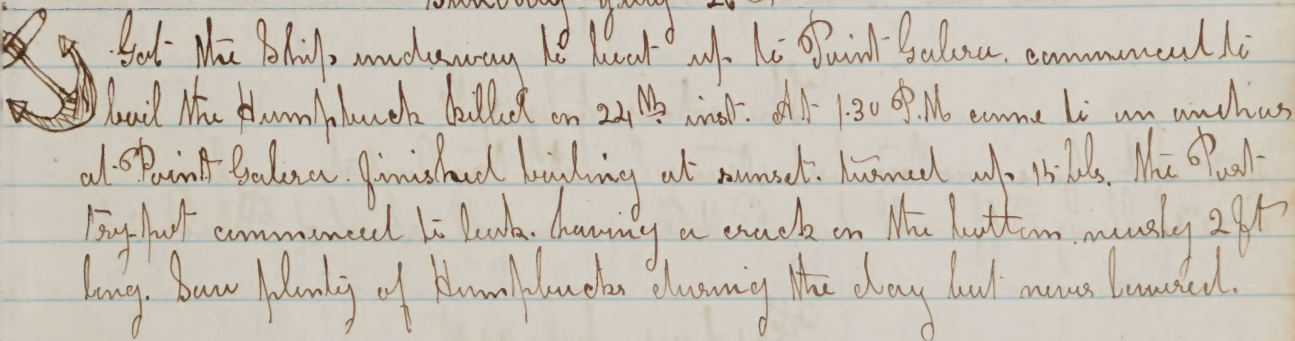 Got the Ship underway to beat up to Point Galera. commenced to
boil the Humpback killed on 24th inst. At 1.30 P.M came to an anchor
at Point Galera. finished boiling at sunset. turned up 15 bbls. the Port
try-pot commenced to leak. having a crack on the bottom nearly 2 ft
long. Saw plenty of Humpbacks during the day but never lowered.